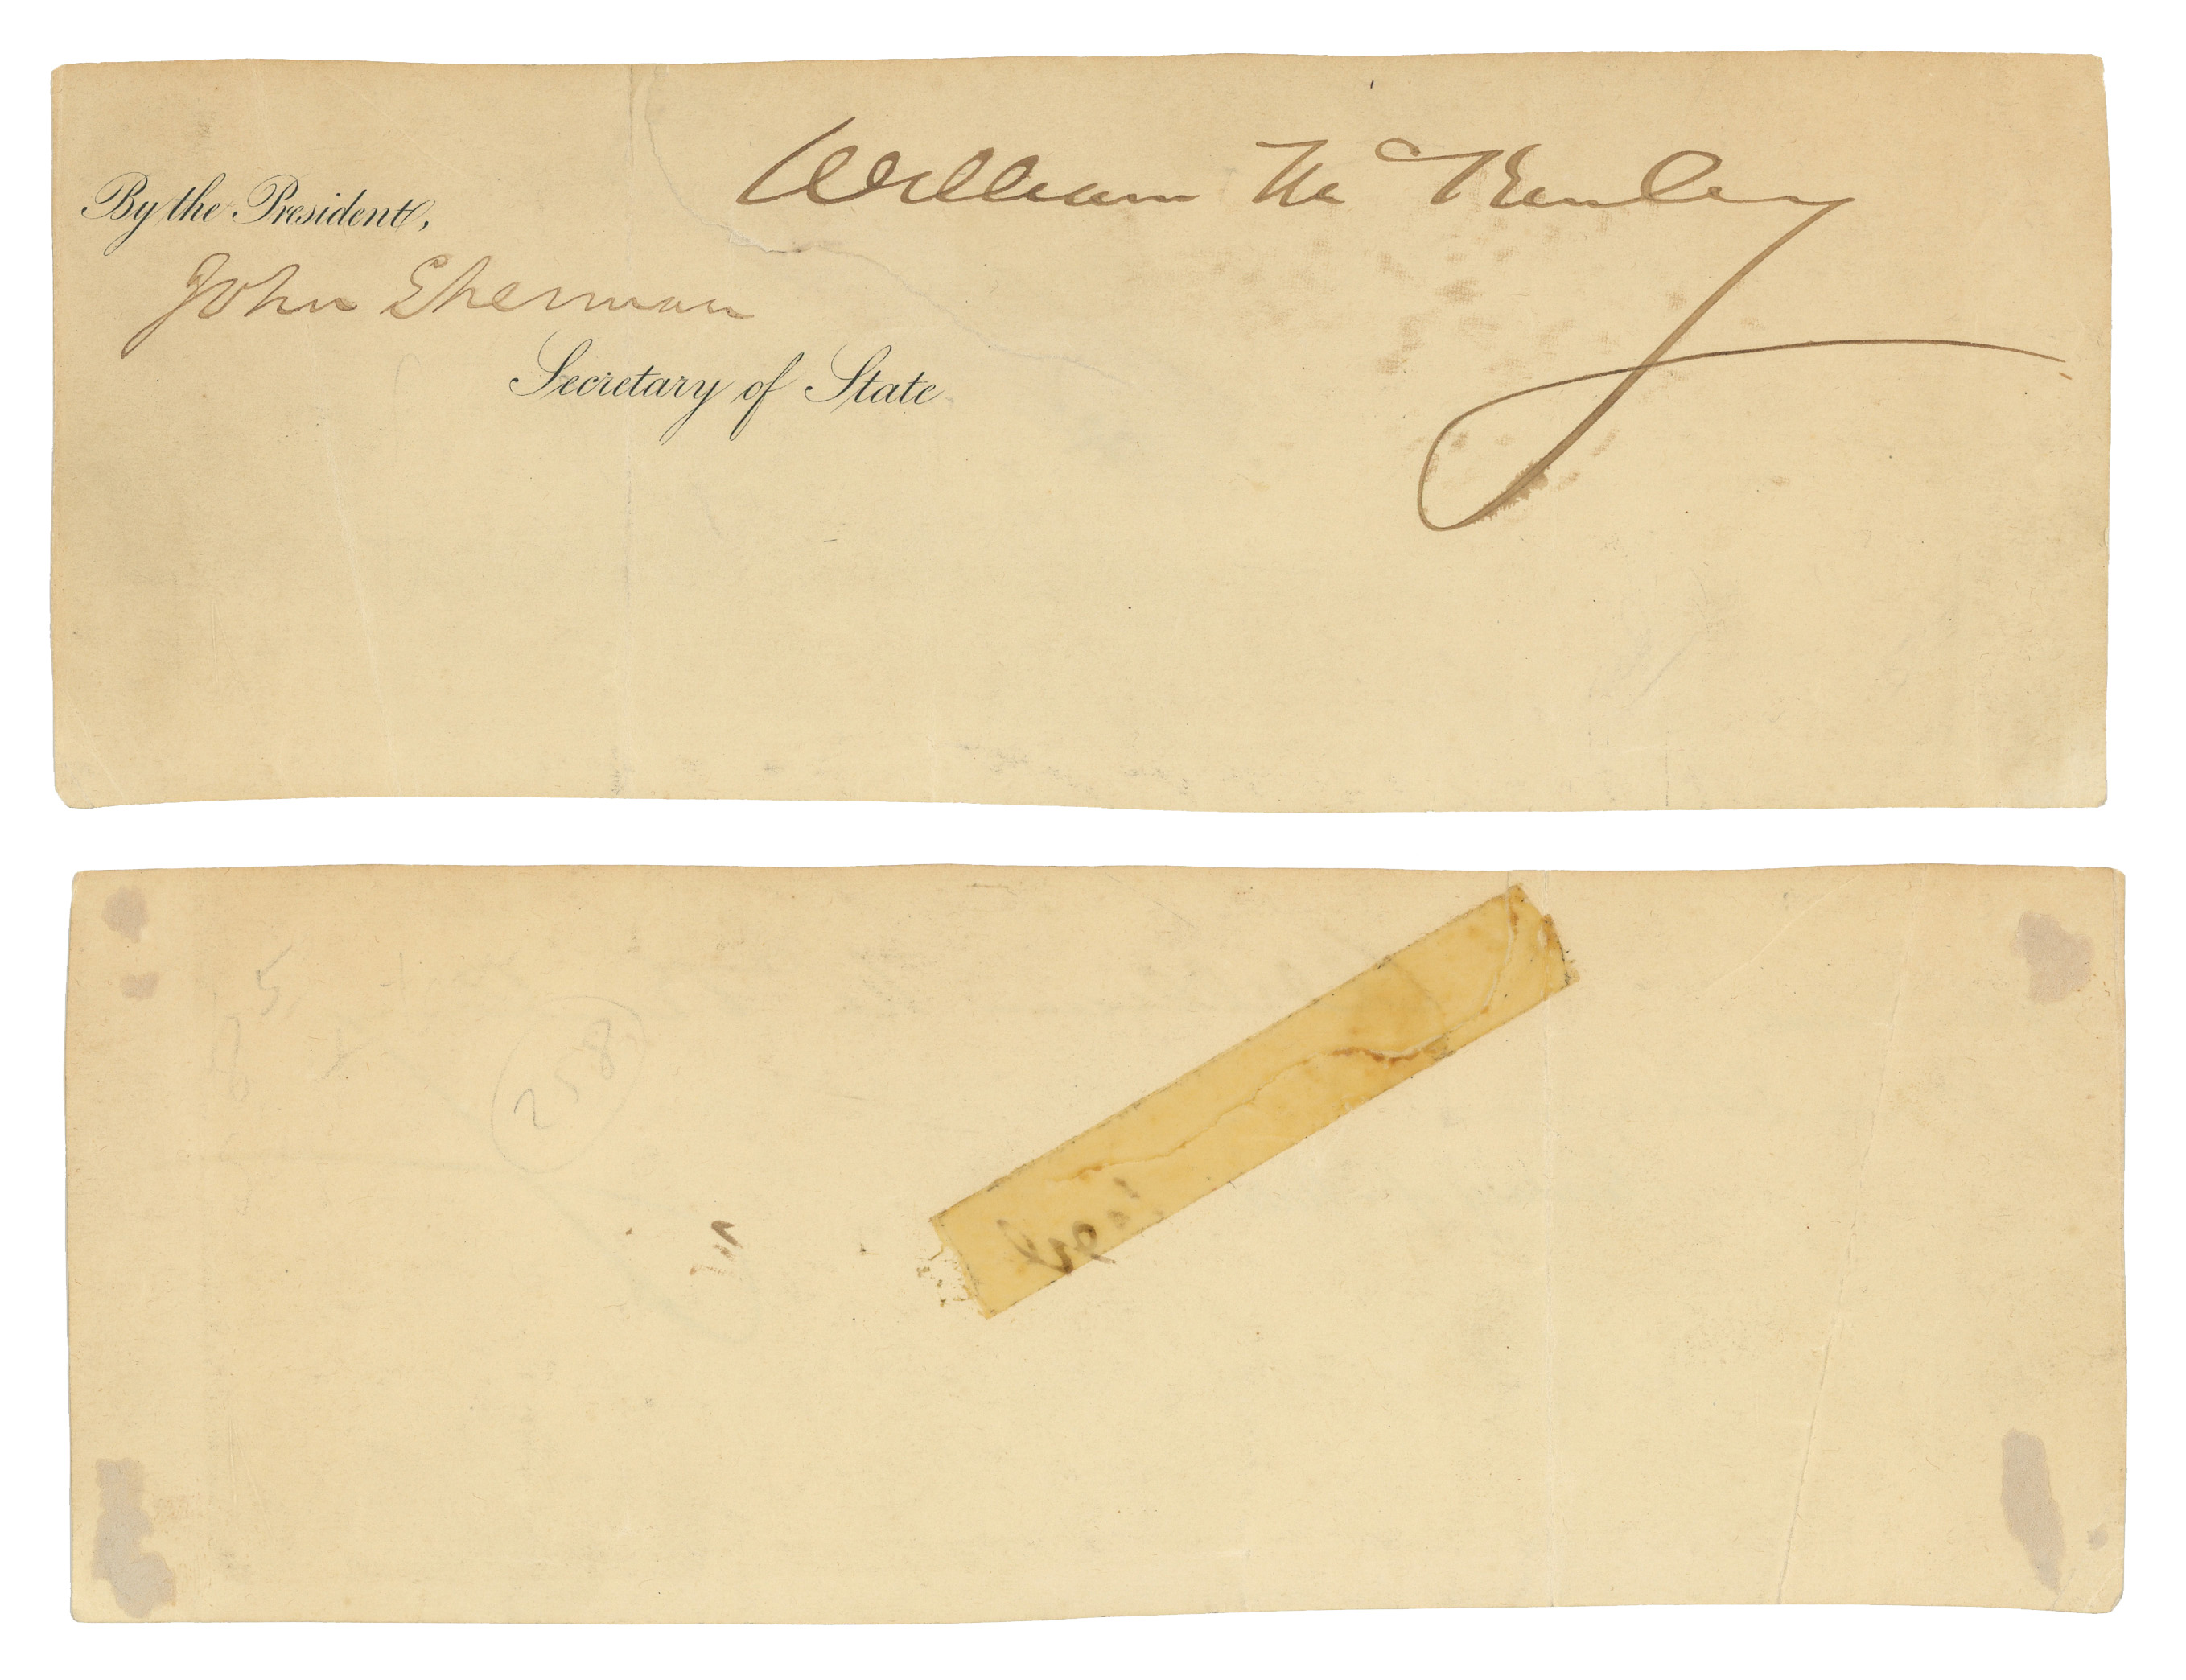 William McKinley
By the President,
John Sherman
Secretary of State
5
258